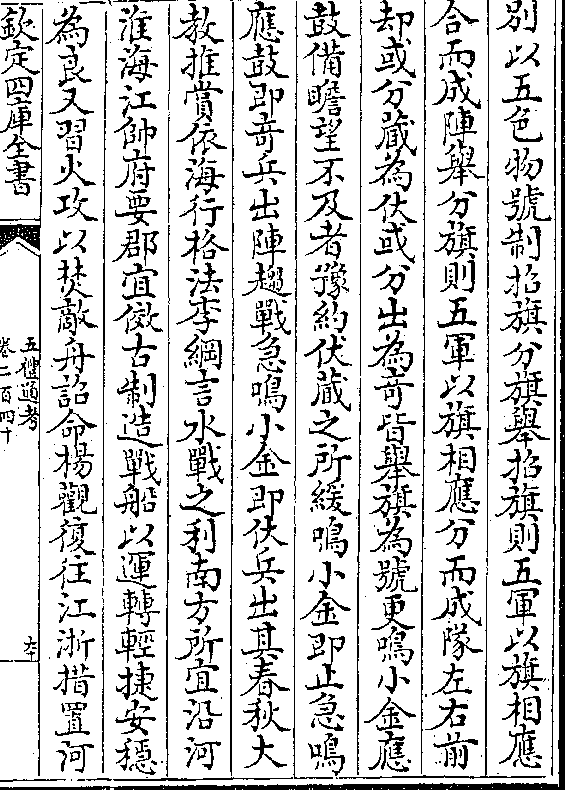 別以五色物號制招旗分旗舉招旗則五軍以旗相應
合而成陣舉分旗則五軍以旗相應分而成隊左右前
却或分藏為伏或分出為竒皆舉旗為號更鳴小金應
鼓備瞻望不及者豫約伏藏之所緩鳴小金即止急鳴
應鼓即竒兵出陣趨戰急鳴小金即伏兵出其春秋大
教推賞依海行格法李綱言水戰之利南方所宜沿河
淮海江帥府要郡宜倣古制造戰船以運轉輕捷安穩
為良又習火攻以焚敵舟詔命楊觀復往江浙措置河
欽定四庫全書
五禮通考
卷二百四十